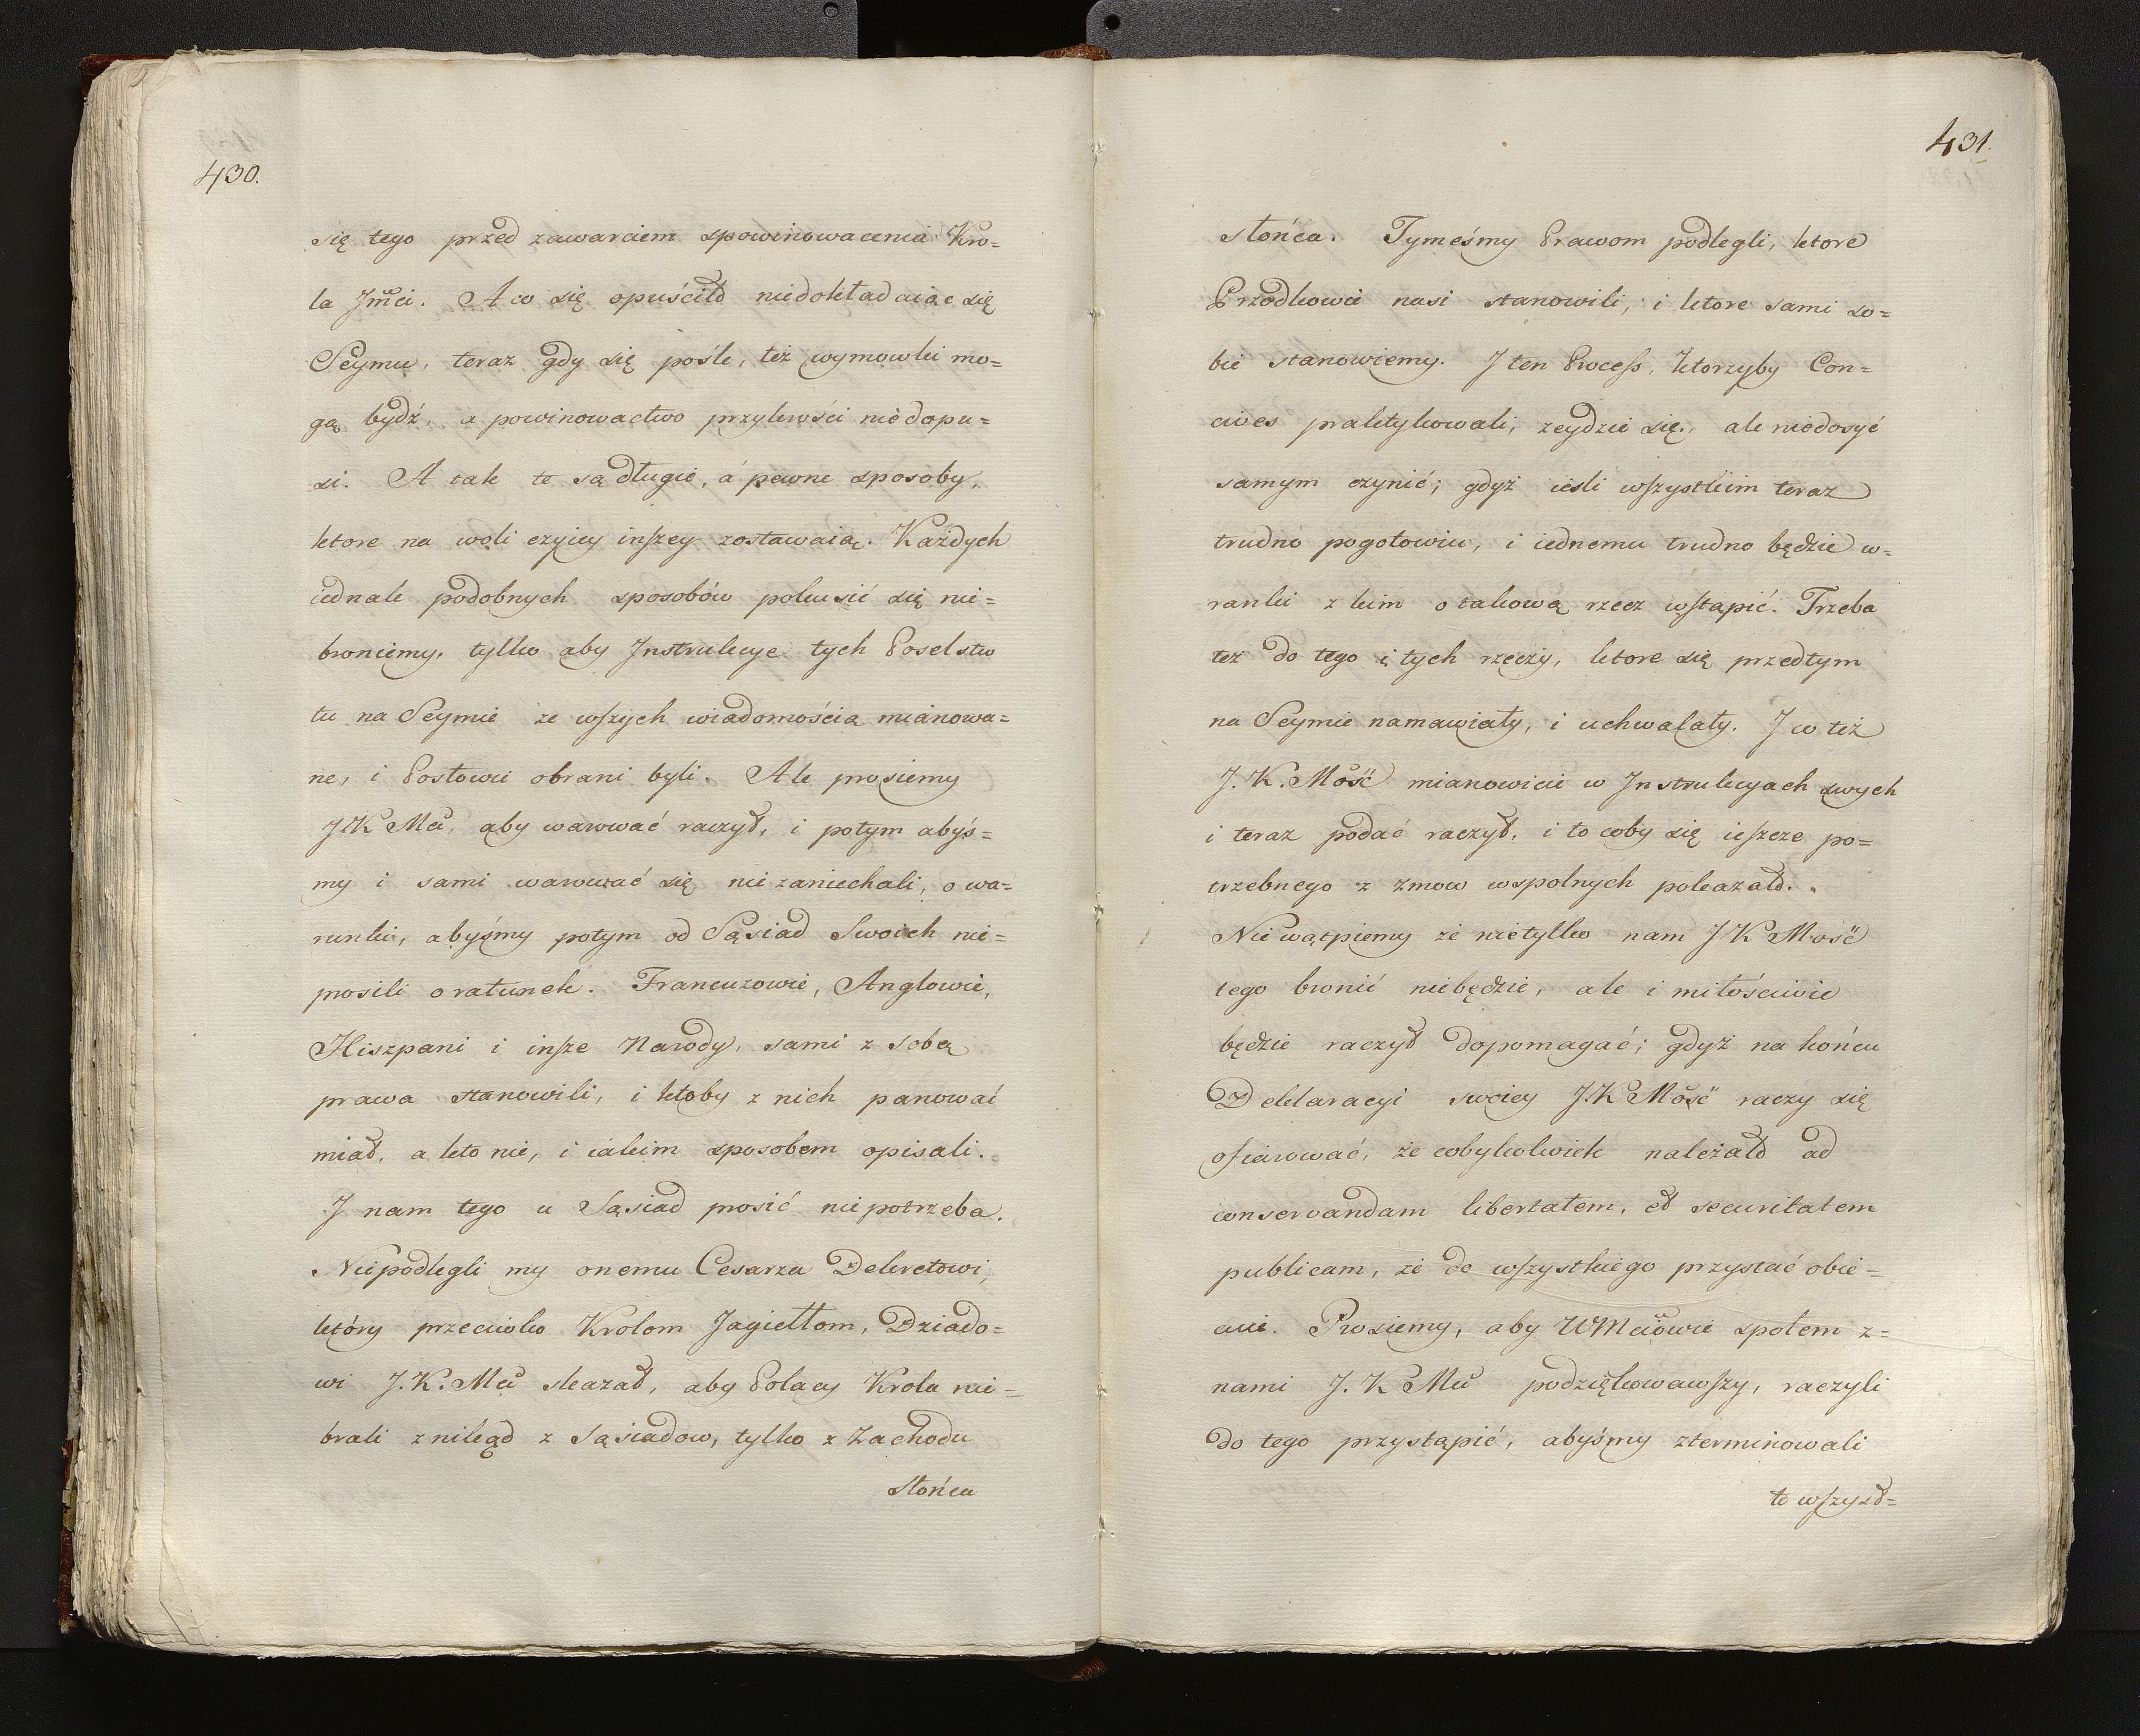 430.
się tego przed zawarciem spowinowacenia Kro=
la Jmci. A co się opuściło niedokładaiąc się
Seymu, teraz gdy się pośle, też wymowki mo=
gą bydź, a powinowactwo przykrości niedopu=
si. A tak te są długie, á pewne sposoby,
ktore na woli czyiey inszey zostawaią. Każdych
iednak podobnych sposobów pokusić się nie=
broniemy, tylko aby Instrukcye tych Poselstw
tu na Seymie ze wszych wiadomością mianowa=
ne, i Posłowie obrani byli. Ale prosiemy
JK Mci, aby warować raczył, i potym abyś=
my i sami warować się nie zaniechali, o wa=
runki, abyśmy potym od Sąsiad Swoich nie=
prosili o ratunek. Francuzowie, Anglowie,
Hiszpani i insze Narody, sami z sobą
prawa stanowili, i ktoby z nich panować
miał, a kto nie, i iakim sposobem opisali.
J nam tego u Sąsiad prosić nie potrzeba.
Niepodlegli my onemu Cesarza Dekretowi,
który przeciwko Krolom Jagiełłom, Dziado=
wi J.K. Mci skazał, aby Polacy Krola nie=
brali znikąd z Sąsiadow, tylko z Zachodu
słońca
431.
słońca. Tymeśmy Prawom podlegli, ktore
Przodkowie nasi stanowili, i ktore sami so=
bie stanowiemy. J ten Process, ktorzyby Con=
cives praktykowali, zeydzie się, ale niedosyć
samym czynić; gdyż iesli wszystkim teraz
trudno pogotowiu, i iednemu trudno będzie w=
ranki z kim o takową rzecz wstąpić. Trzeba
też do tego i tych rzeczy, ktore się przedtym
na Seymie namawiały, i uchwalały. J co też
J. K. Mość mianowicie w Instrukcyach swych
i teraz podać raczył, i to coby się ieszcze po=
trzebnego z zmow wspolnych pokazało.
Nie wątpiemy że nietylko nam J K Mość
tego bronić niebędzie, ale i miłościwie
będzie raczył dopomagać; gdyż na końcu
Deklaracyi swoiey J.K Mość raczy się
ofiarować, że cobykolwiek należało ad
conservandam libertatem, et securitatem
publicam, że do wszystkiego przystać obie=
cuie. Prosiemy, aby WMciowie społem z=
nami J. K Mci podziękowawszy, raczyli
do tego przystąpić, abyśmy zterminowali
to wszyst=